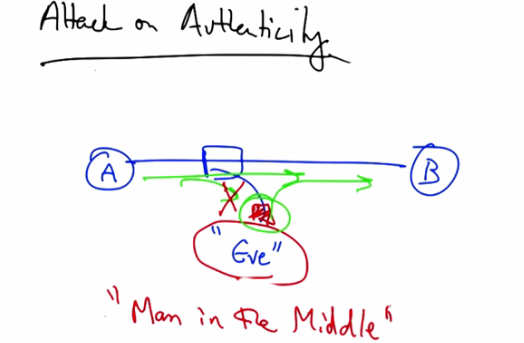 Attack on Authenticity
A
B
"Eve"
"Man in the Middle"